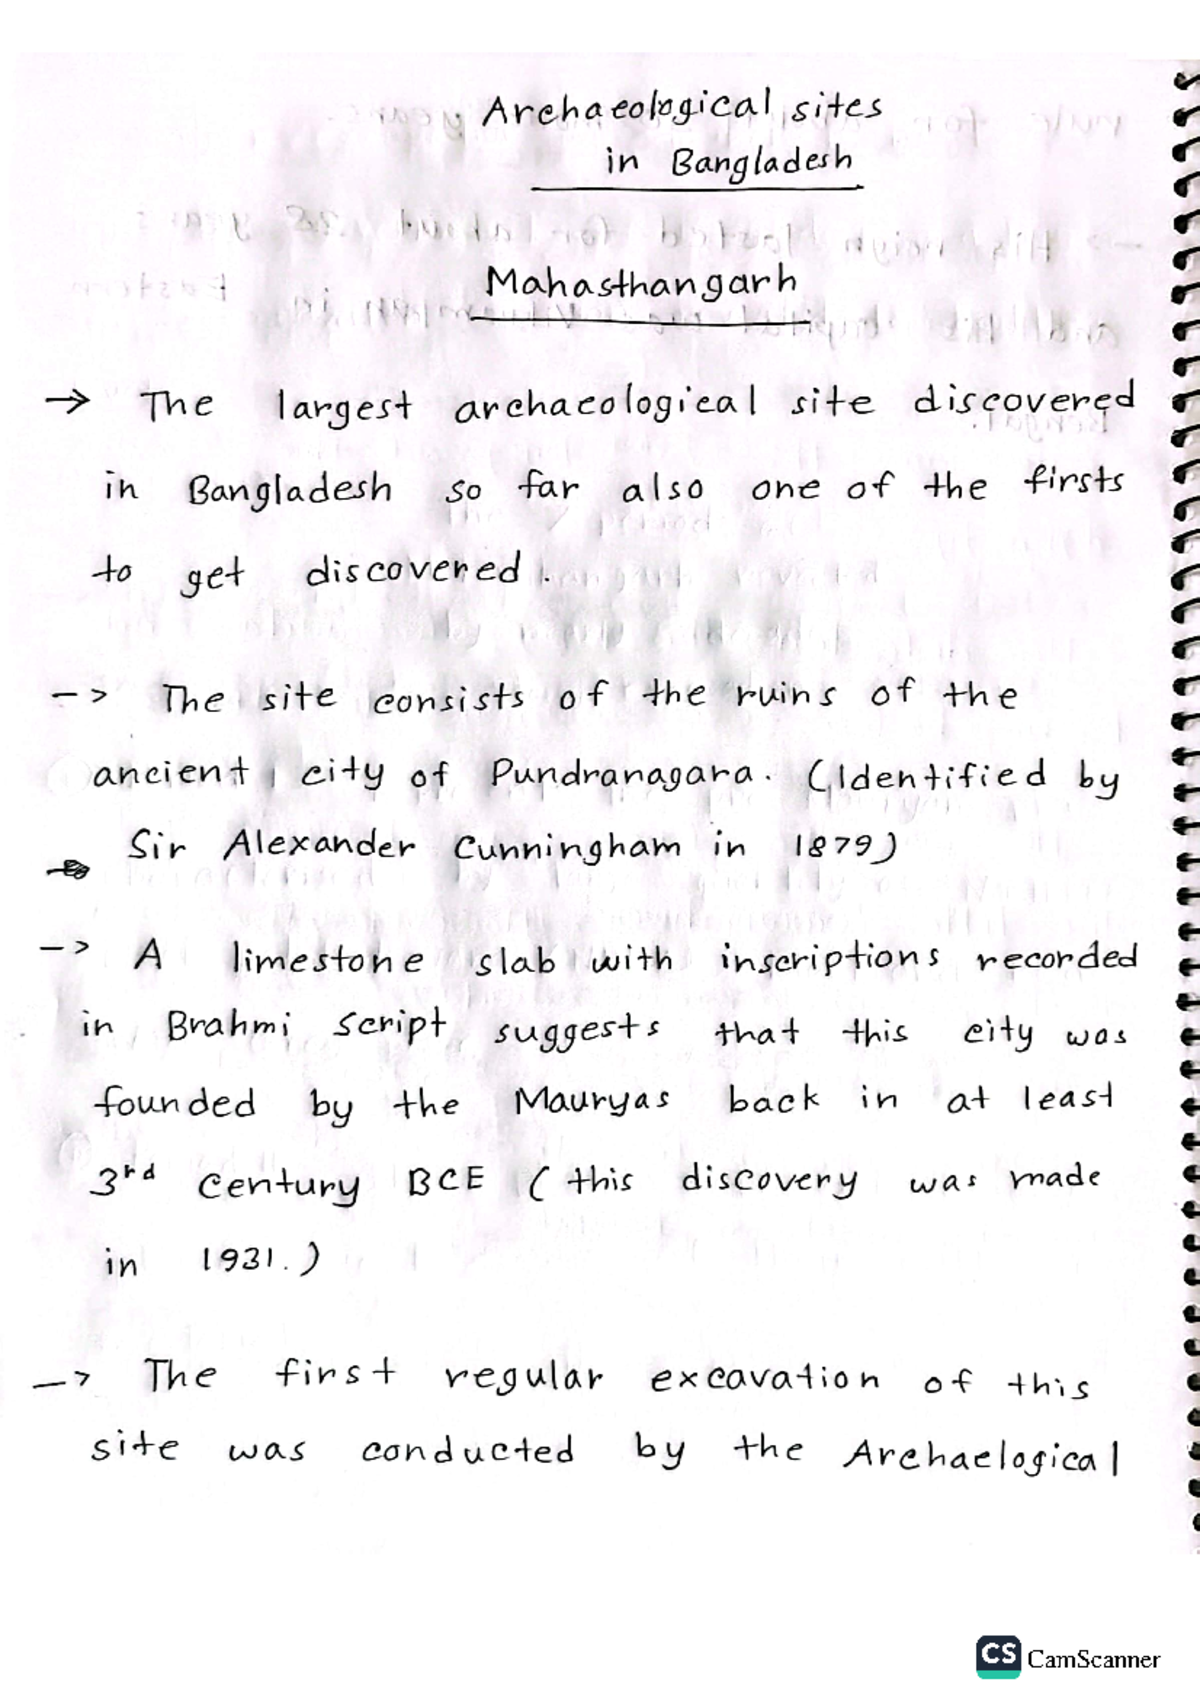 Archaeological sites
in Bangladesh
Mahasthangarh
→ The largest archaeological site discovered
in Bangladesh so far also one of the firsts
to get discovered.
-> The site consists of the ruins of the
ancient city of Pundranagara. (Identified by
Sir Alexander Cunningham in 1879)
-> A limestone slab with inscriptions recorded
in Brahmi script suggests that this city was
founded by the Mauryas back in at least
3rd century BCE (this discovery was made
in 1931.)
-> The first regular excavation of this
site was conducted by the Archaelogical
CS CamScanner